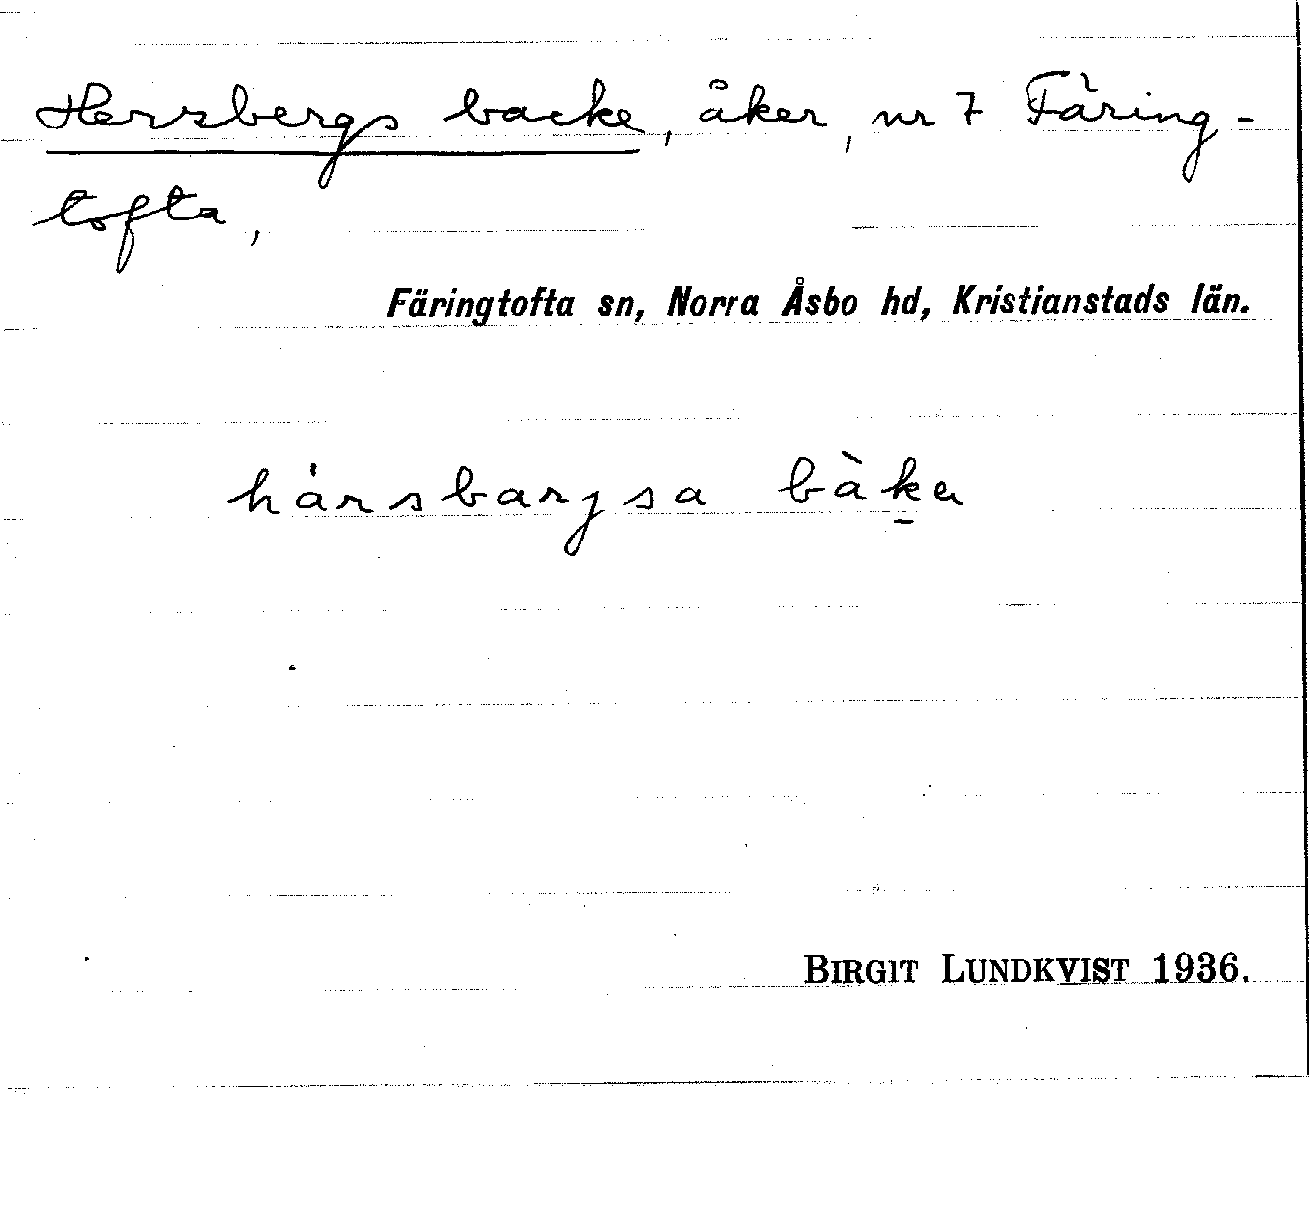 Hersbergs backe, åker, nr 7 Färing-
tofta,
Färingtofta sn, Norra Åsbo hd, Kristianstads län.
hársbarjsa bàka
BIRGIT LUNDKVIST 1936.